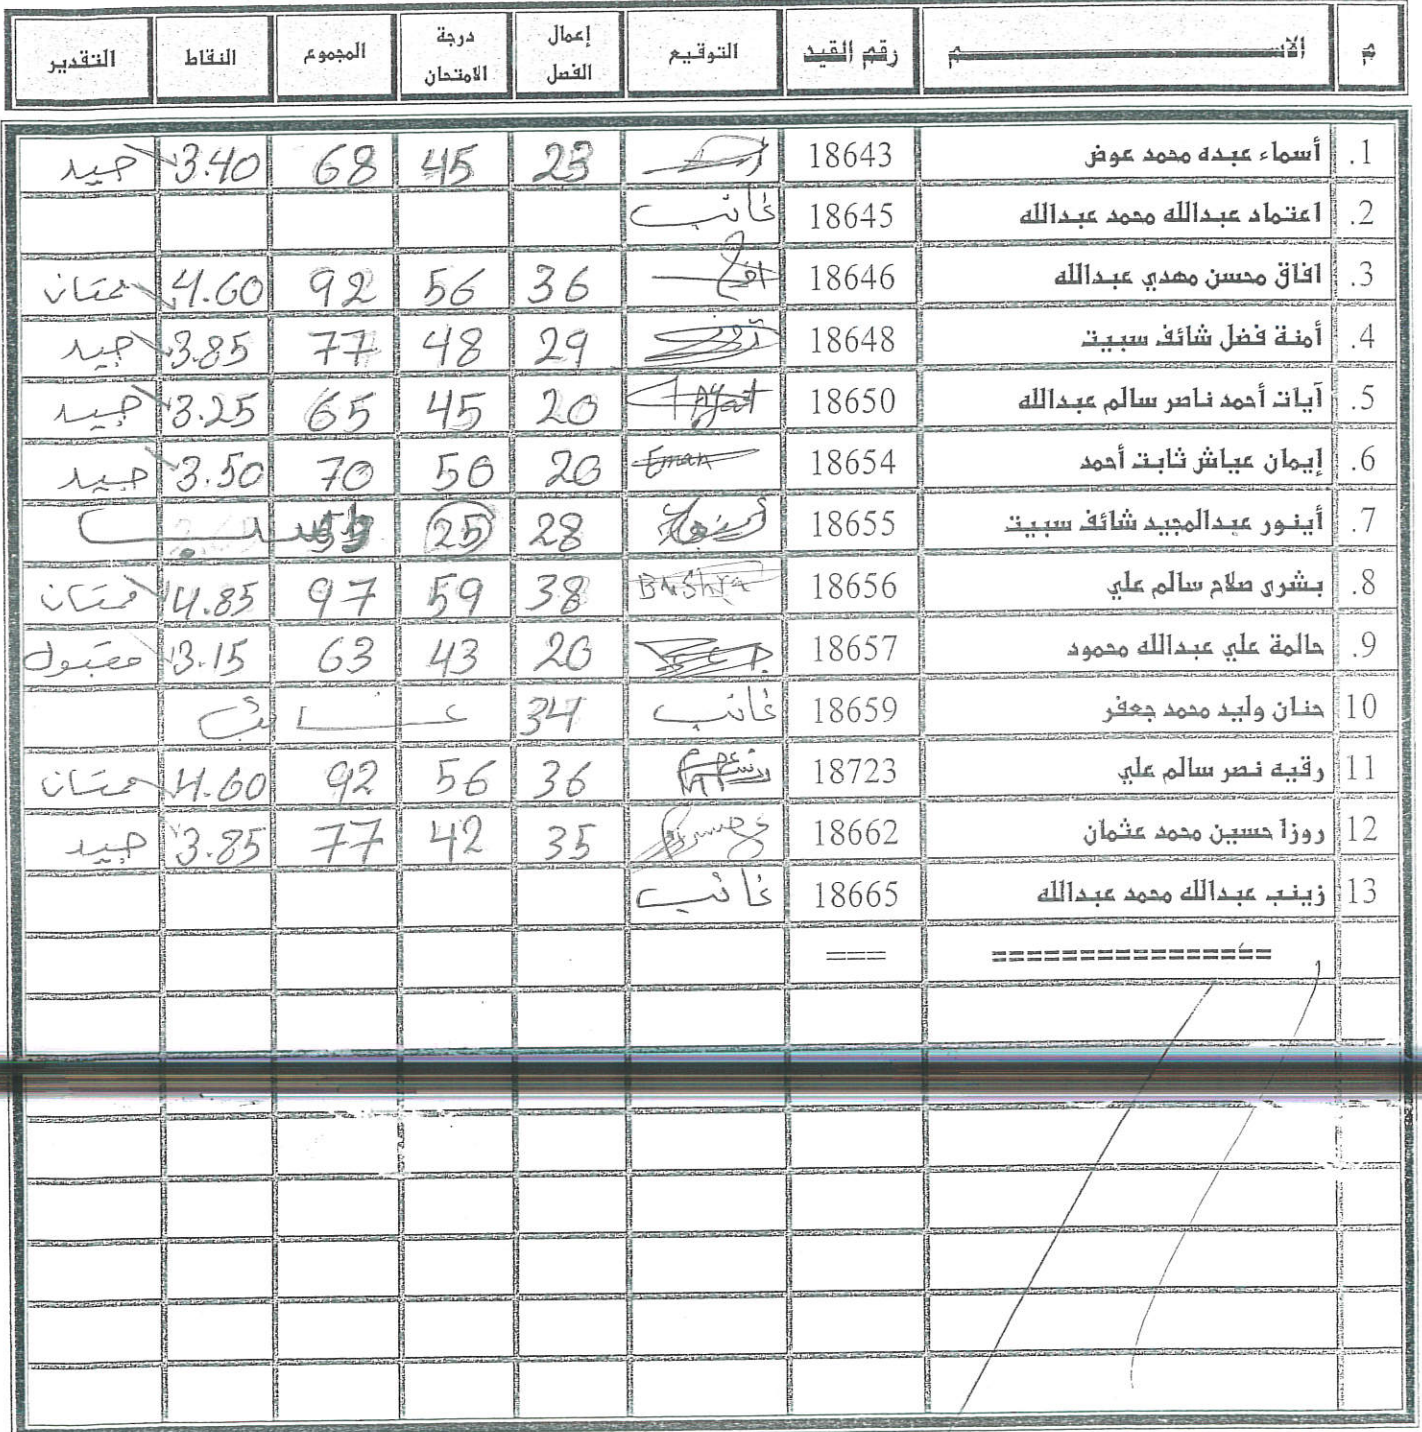 م الاســـــــم رقم القيد التوقيع إعمال الفصل درجة الامتحان المجموع النقاط التقدير
1. أسماء عبده محمد عوض 18643 23 45 68 3.40 جيد
2. اعتماد عبدالله محمد عبدالله 18645 غائب
3. افاق محسن مهدي عبدالله 18646 36 56 92 4.60 ممتاز
4. أمنة فضل شائف سبيت 18648 29 48 77 3.85 جيد
5. آيات أحمد ناصر سالم عبدالله 18650 Ayat 20 45 65 3.25 جيد
6. إيمان عياش ثابت أحمد 18654 Eman 20 50 70 3.50 جيد
7. أينور عبدالمجيد شائف سبيت 18655 28 25
8. بشرى صلاح سالم علي 18656 Bushra 38 59 97 4.85 ممتاز
9. حالمة علي عبدالله محمود 18657 20 43 63 3.15 مقبول
10 حنان وليد محمد جعفر 18659 غائب 34 غـــائب
11 رقيه نصر سالم علي 18723 36 56 92 4.60 ممتاز
12 روزا حسين محمد عثمان 18662 35 42 77 3.85 جيد
13 زينب عبدالله محمد عبدالله 18665 غائب
================ ===